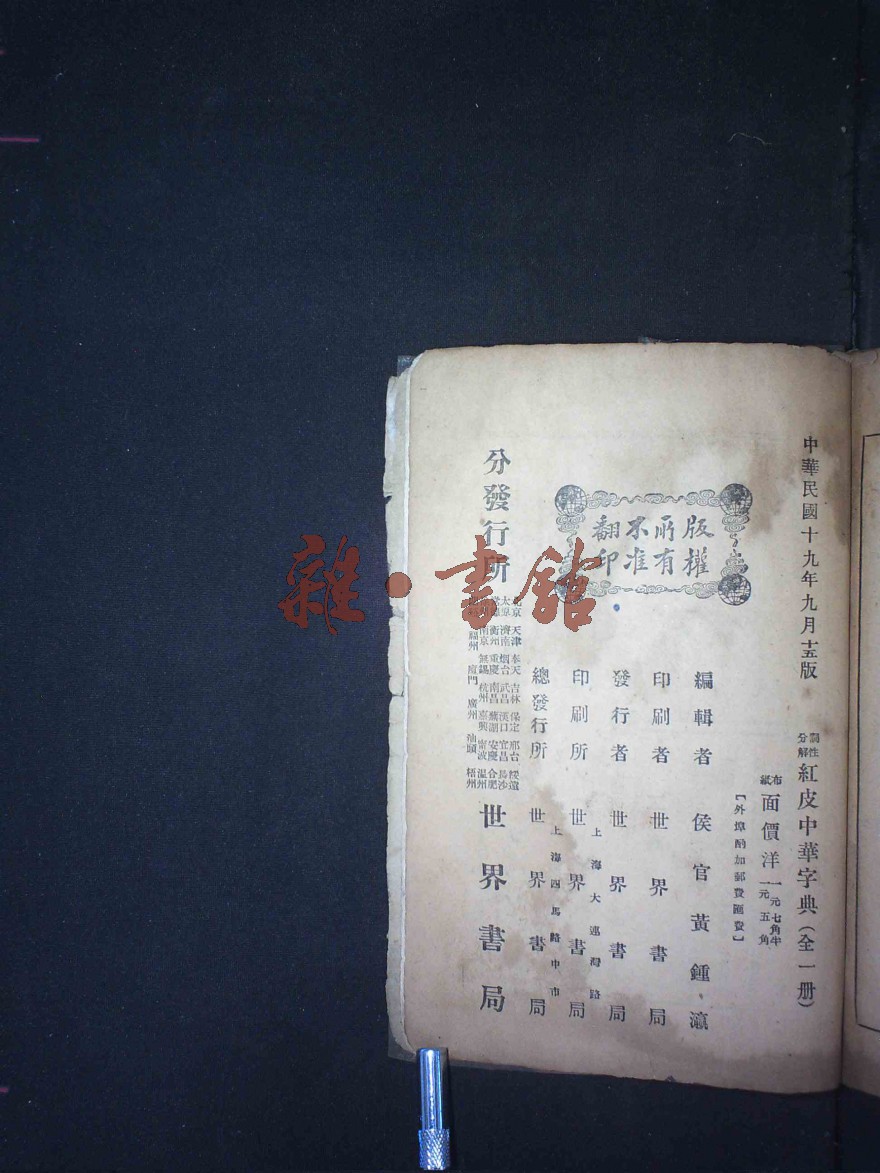 中華民國十九年九月十五版
詞性分解
紅皮中華字典(全一册)
布
紙
面價洋
一元七角半
一元五角
【外埠酌加郵費匯費】
版權
所有
不准
翻印
編輯者 侯官黃鍾瀛
印刷者 世界書局
發行者 世界書局
上海大連灣路
印刷所 世界書局
上海四馬路中市
總發行所 世界書局
分發行所
北京 天津 奉天 吉林 保定 邢台 綏遠
太原 濟南 烟台 武昌 漢口 宜昌 長沙
衡州 重慶 南昌 蕪湖 安慶 合肥
南京 無錫 杭州 嘉興 甯波 温州
福州 廈門 廣州 汕頭 梧州
世界書局
雜·書館